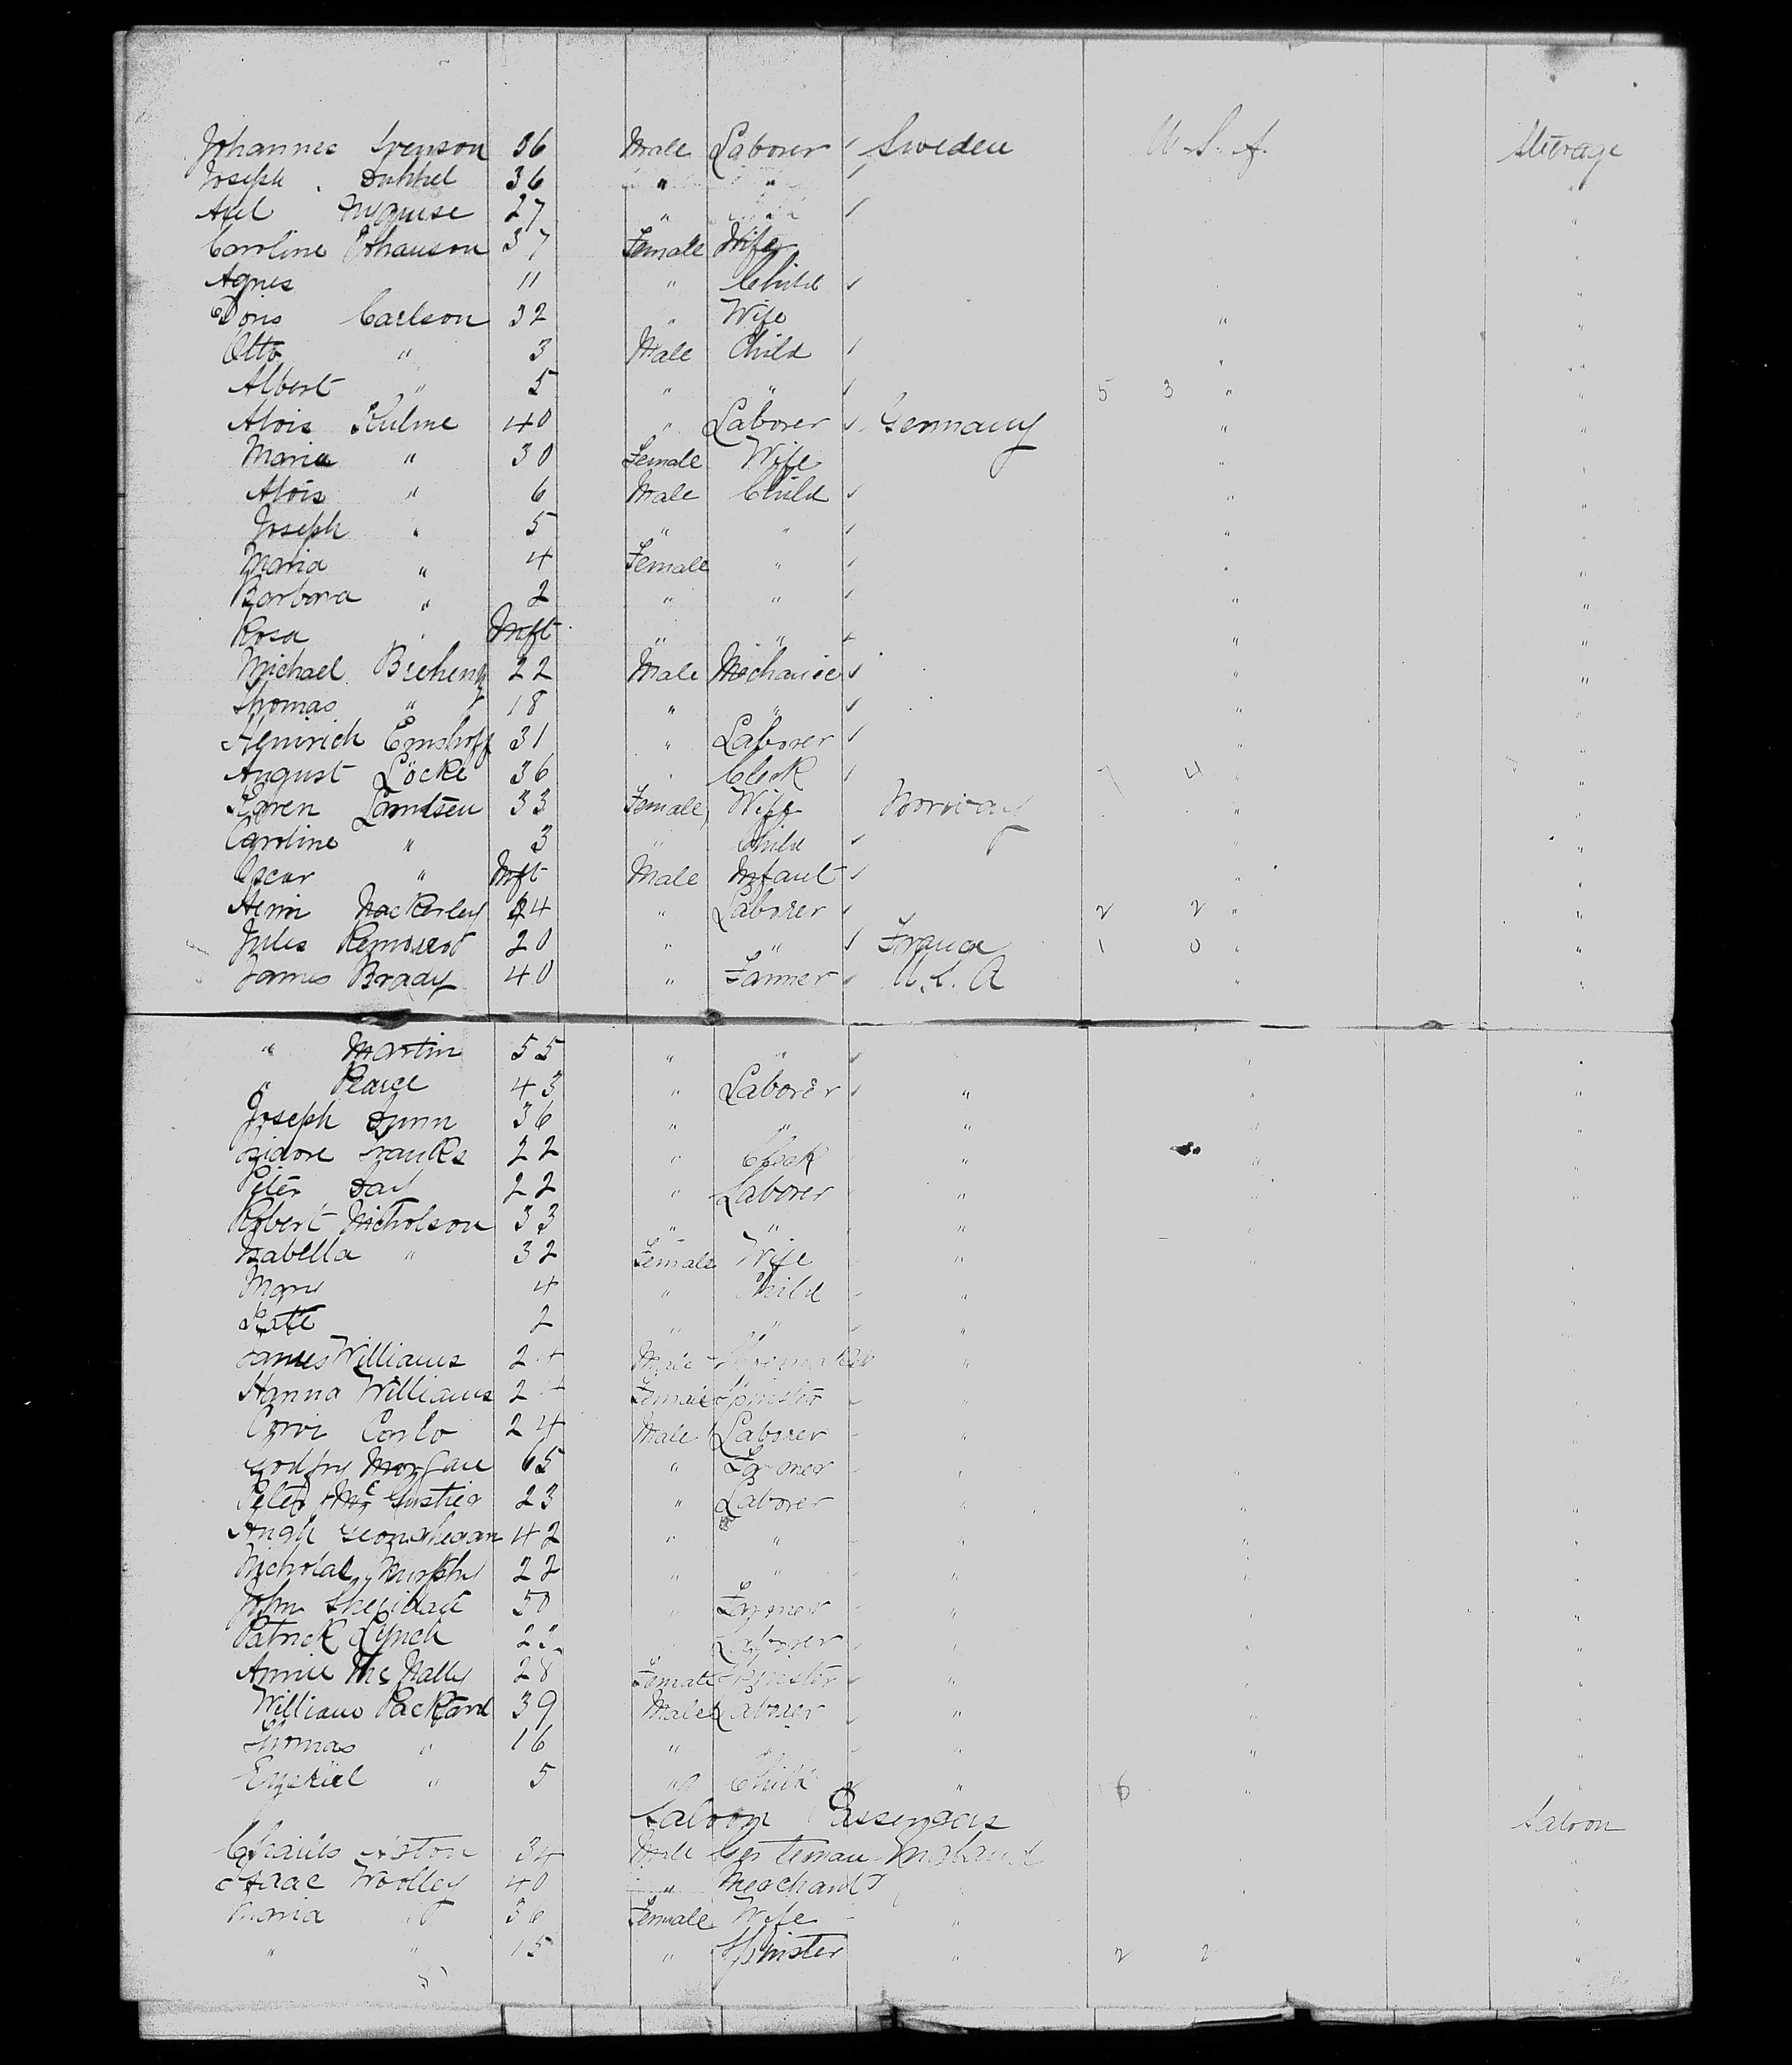 Johannes Svenson 36 Male Laborer ✓ Sweden U. S. A. Steerage
Joseph 36 " " ✓ "
Axel 27 " ✓ "
Caroline Johanson 37 Female Wife "
Agnes 11 " Child ✓ "
Doris Carlson 32 " Wife " "
Otto " 3 Male Child ✓ " "
Albert " 5 " " ✓ 5 3 " "
Alois Kulme 40 " Laborer ✓ Germany " "
Maria " 30 Female Wife " "
Alois " 6 Male Child ✓ " "
Joseph " 5 " " ✓ " "
Maria " 4 Female " ✓ " "
Barbara " 2 " " ✓ " "
Rosa " Inft " " ✓ " "
Michael Breheny 22 Male Mechanic ✓ " "
Thomas " 18 " " ✓ " "
Heinrich Emshoff 31 " Laborer ✓ " "
August Löcke 36 " Clerk ✓ 7 4 " "
Karen 33 Female Wife Norway " "
Caroline " 3 " Child ✓ " "
Oscar " Inft Male Infant ✓ " "
Henri 24 " Laborer ✓ 2 2 " "
Jules 20 " " ✓ France 1 0 " "
James Brady 40 " Farmer ✓ U. S. A " "
" Martin 55 " " ✓ " "
" Pearce 43 " Laborer ✓ " " "
Joseph Dunn 36 " " " " "
Isidore Franks 22 " Clerk " " "
Peter Day 22 " Laborer " " "
Robert Nicholson 33 " " " "
Isabella " 32 Female Wife " " "
Mary 4 " Child " "
Kate 2 " " ✓ "
James Williams 24 Male "
Hanna Williams 2 Female Spinster " "
Carlo 24 Male Laborer " "
Godfry Morgan 65 " Farmer " " "
Peter 23 " Laborer " " "
Hugh Geoghegan 42 " " " " "
Nicholas Murphy 22 " " " " "
John Sheridan 50 " Farmer " " "
Patrick Lynch 22 Laborer " " "
Annie McNally 28 Female Spinster " " "
William Packard 39 Male Laborer " " "
Thomas " 16 " " " "
Ezekiel " 5 " Child " 6 " "
Saloon Passengers Saloon
Charles Aston 34 Male Gentleman England
Isaac Woolley 40 " Merchant "
Maria " 36 Female Wife " "
" " 15 " Spinster " 2 2 "